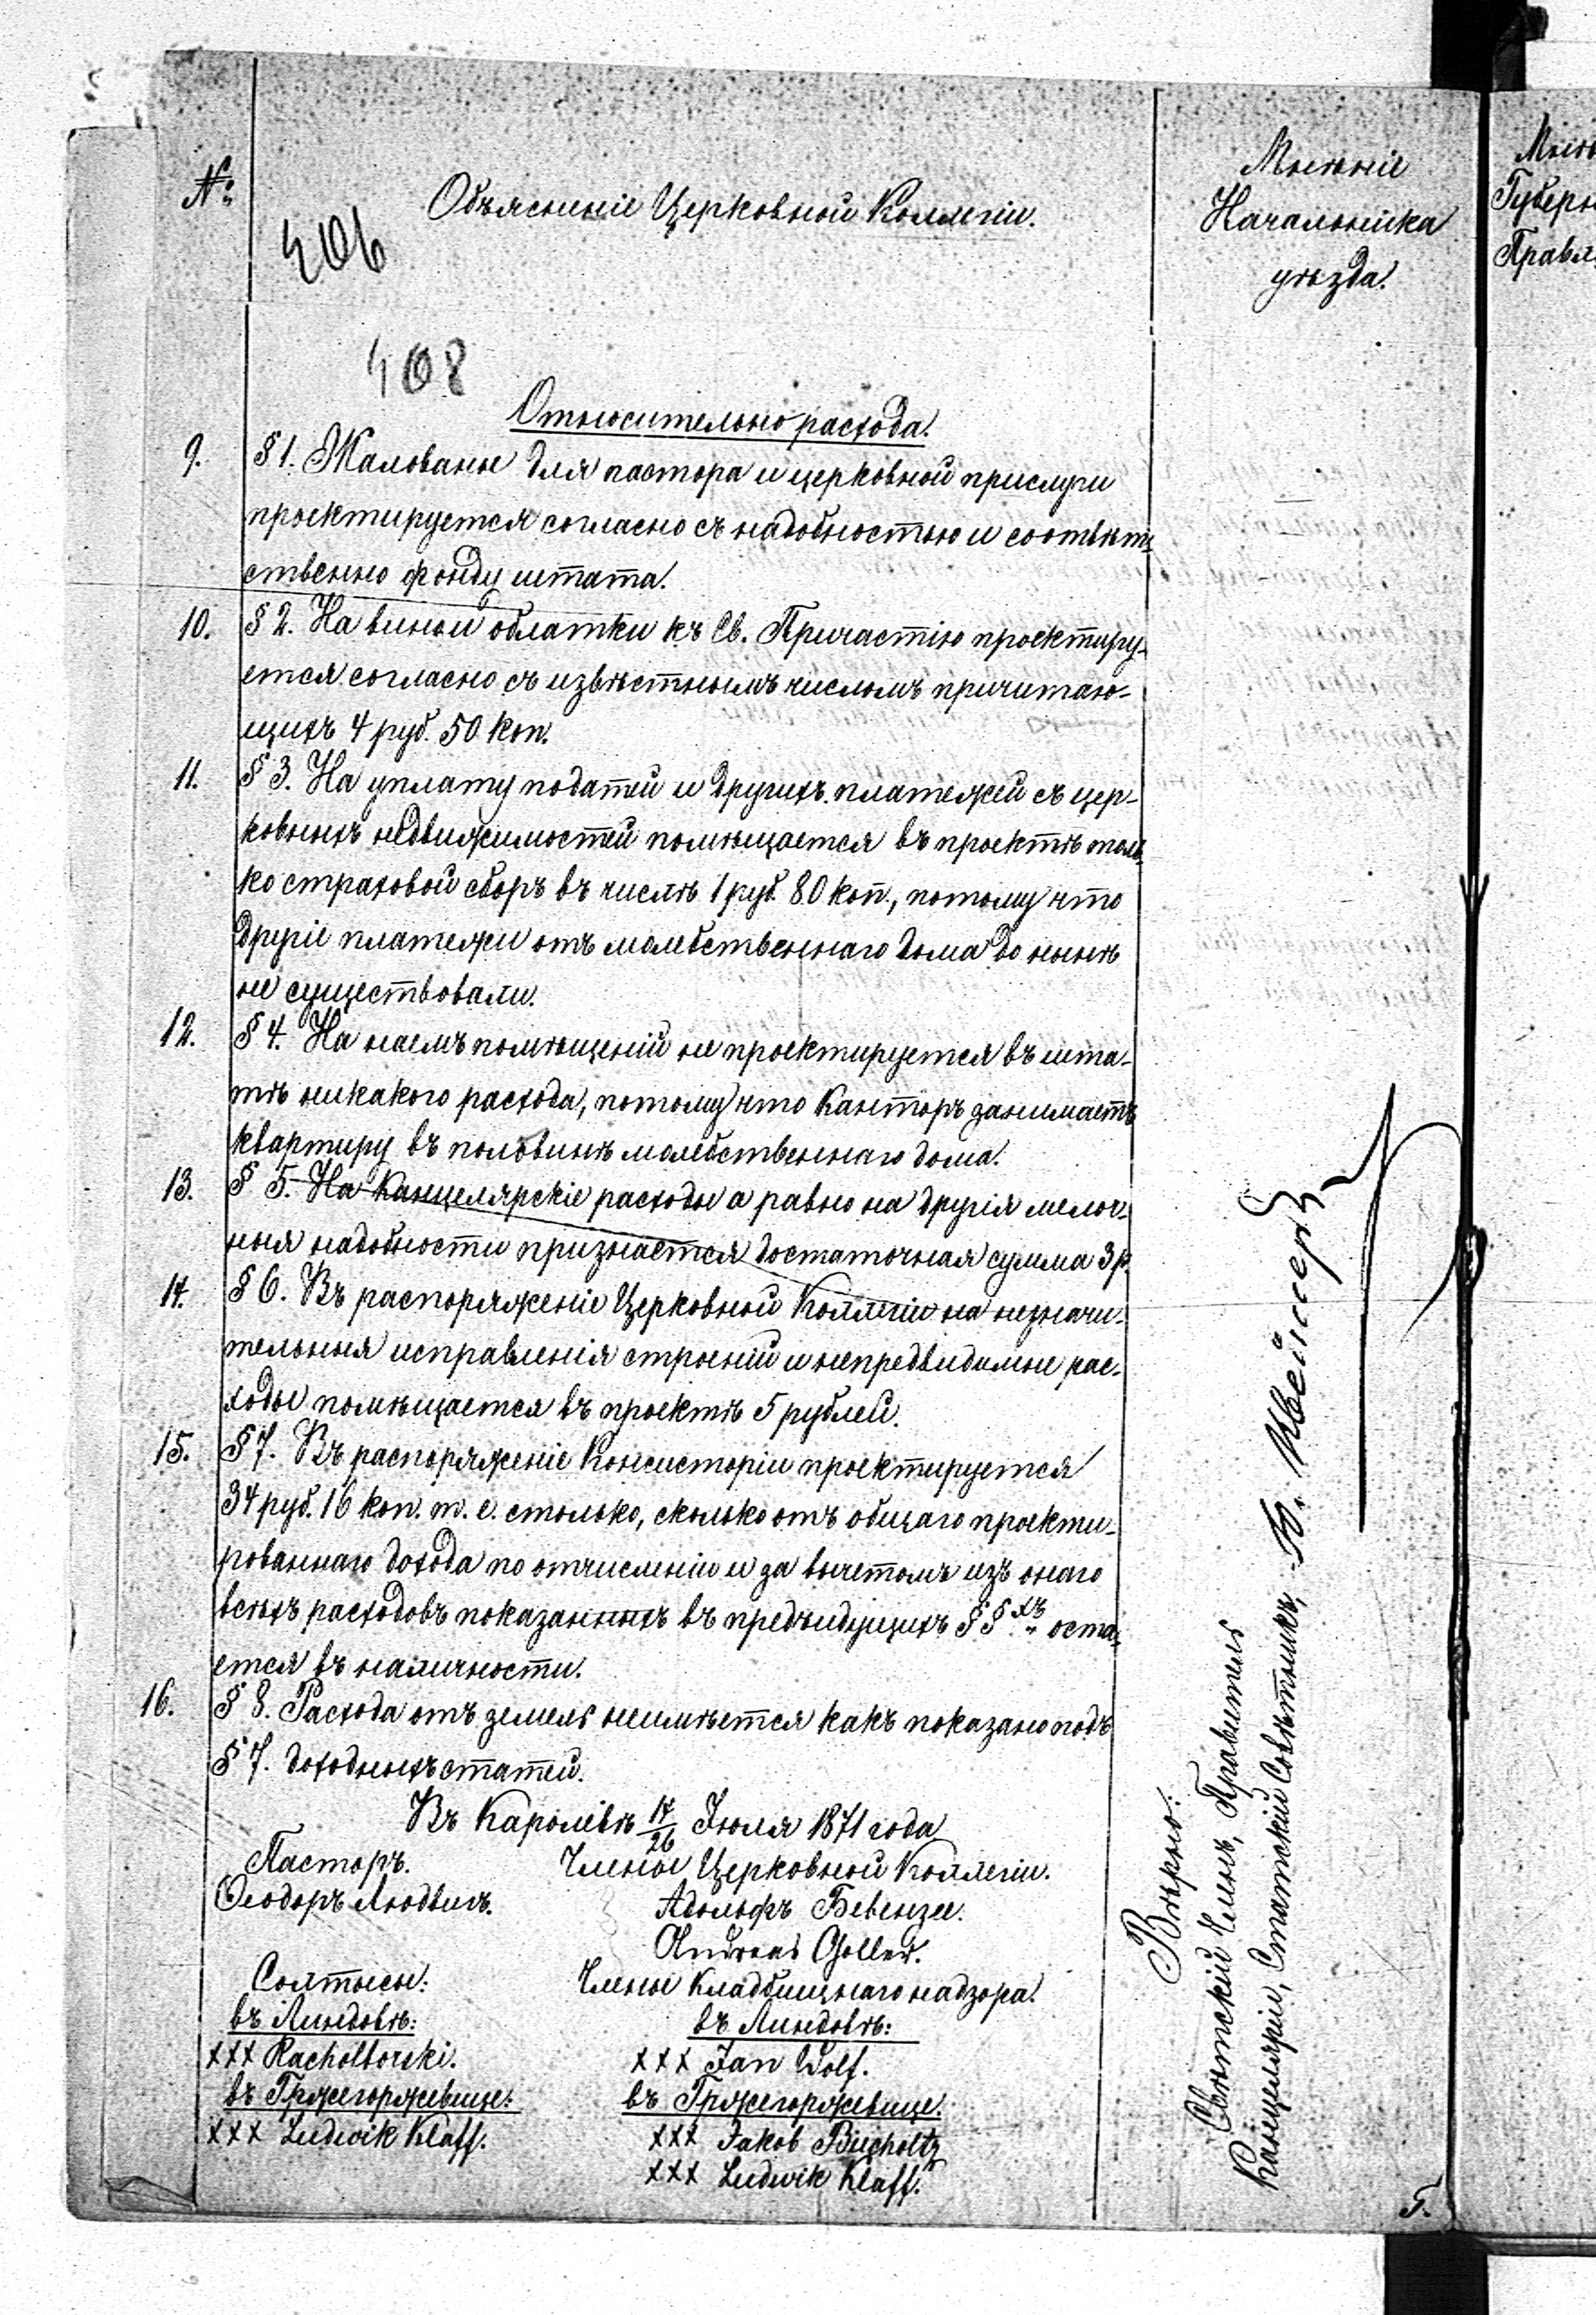 №
Объясненіе Церковной Коллегіи.
Мнѣніе
Начальника
уѣзда.
406
408
Относительно расхода.
9. § 1. Жалованье для пастора и церковной прислуги
проектируется согласно съ надобностью и соотвѣт-
ственно фонду штата.
10. § 2. На вино и облатки къ Св. Причастію проектиру-
ется согласно съ извѣстнымъ числомъ причитаю-
щихъ 4 руб. 50 коп.
11. § 3. На уплату податей и другихъ платежей съ цер-
ковныхъ недвижимостей помѣщается въ проектѣ толь-
ко страховой сборъ въ числѣ 1 руб. 80 коп., потому что
другіе платежи отъ молебственнаго дома до нынѣ
не существовали.
12. § 4. На наемъ помѣщеній не проектируется въ шта-
тѣ никакого расхода, потому что Канторъ занимаетъ
квартиру въ половинѣ молебственнаго дома.
13. § 5. На Канцелярскіе расходы а равно на другія мелоч-
ныя надобности признается достаточная сумма 3 р.
14. § 6. Въ распоряженіе Церковной Коллегіи на незначи-
тельныя исправленія строеній и непредвидимые рас-
ходы помѣщается въ проектѣ 5 рублей.
15. § 7. Въ распоряженіе Консисторіи проектируется
34 руб. 16 коп. т. е. столько, сколько отъ общаго проекти-
рованнаго дохода по отчисленіи и за вычетомъ изъ онаго
всѣхъ расходовъ показанныхъ въ предъидущихъ §§ хъ оста-
ется въ наличности.
16. § 8. Расхода отъ земель неимѣется какъ показано подъ
§ 7. доходныхъ статей.
Въ Каролевѣ 14/26 Іюля 1871 года
Пасторъ. Члены Церковной Коллегіи.
Ѳеодоръ Людвигъ. Адольфъ Бевензее.
Andreas Goller.
Солтысы: Члены Кладбищнаго надзора.
въ Линдовѣ: въ Линдовѣ:
XXX Racholborski. XXX Jan Wolf.
въ Гржегоржевице: въ Гржегоржевице.
XXX Ludwik Klaff. XXX Jakob Bucholtz
XXX Ludwik Klaff.
Вѣрно:
Свѣтскій Членъ, Правитель
Канцеляріи, Статскій Совѣтникъ,
5.
Мнѣн
Губерн
Правл